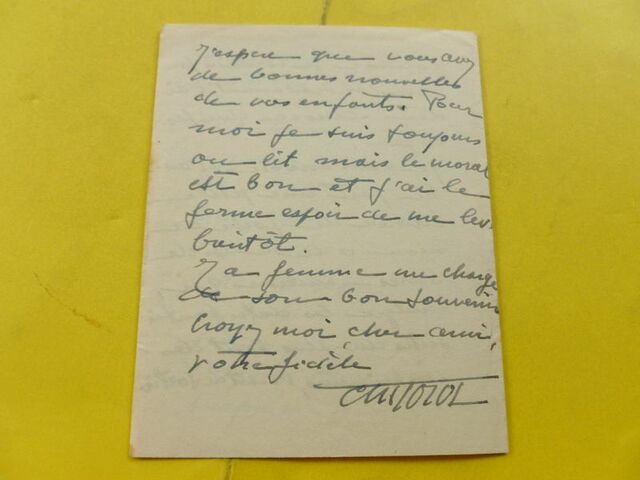 J'espère que vous avez
de bonnes nouvelles
de vos enfants. Pour
moi je suis toujours
au lit mais le moral
est bon et j'ai le
ferme espoir de me lev
bientôt.
Ma femme me charge
de son bon souvenir
Croyez moi, cher ami,
votre fidèle